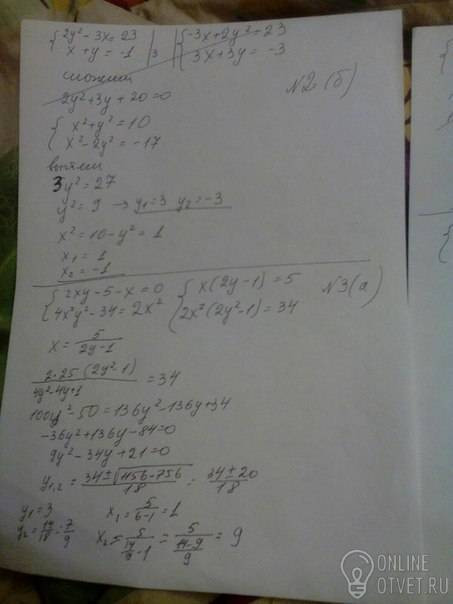 {2y²-3x=23 | {-3x+2y²=23
x+y=-1 |3 | 3x+3y=-3
сложили
2y²+3y+20=0
№2(б)
{x²+y²=10
x²-2y²=-17
вычли
3y²=27
y²=9 → y₁=3 y₂=-3
x²=10-y²=1
x₁=1
x₂=-1
{2xy-5-x=0 {x(2y-1)=5 №3(а)
4x²y²-34=2x² 2x²(2y²-1)=34
x=5/(2y-1)
2·25(2y²-1)/(4y²-4y+1)=34
100y²-50=136y²-136y+34
-36y²+136y-84=0
9y²-34y+21=0
y₁,₂=(34±√(1156-756))/18=(34±20)/18
y₁=3 x₁=5/(6-1)=1
y₂=14/18=7/9 x₂=5/(14/9-1)=5/((14-9)/9)=9
ONLINE
OTVET.RU